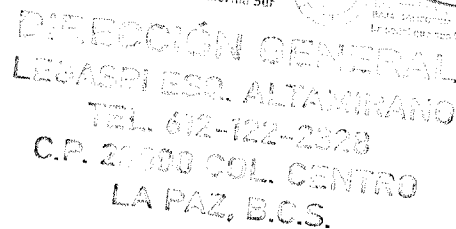 Sur
DIRECCIÓN GENERAL
LEGASPI ESQ. ALTAMIRANO
TEL. 612-122-2328
C.P. COL. CENTRO
LA PAZ, B.C.S.